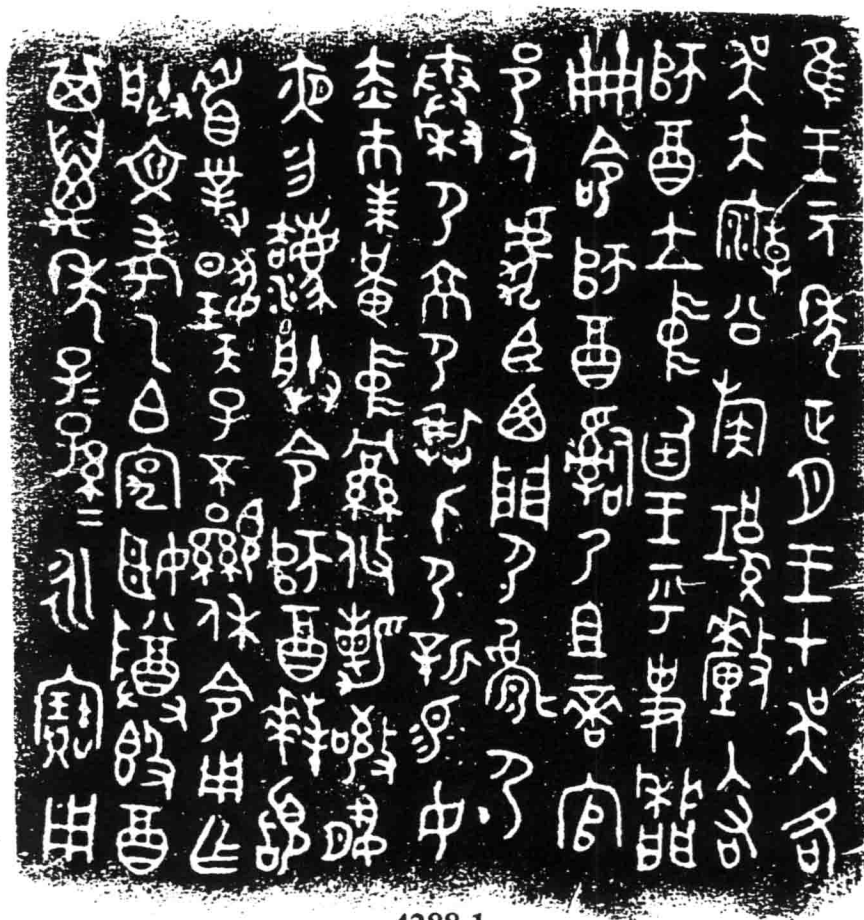 隹王元年正月王才吳各
吳大廟公族𤔲釐入右
師酉立中廷王乎史
冊命師酉𤔲乃且啻官
邑人虎臣西門尸𢍰尸
秦尸京尸畀身尸新易女
赤巿朱黃中絅攸勒敬夙
夜勿灋朕令師酉拜𩒨
首對揚天子不顯休令用乍
朕文考乙白宄姬尊𣪘酉
其萬年子=孫=永寶用